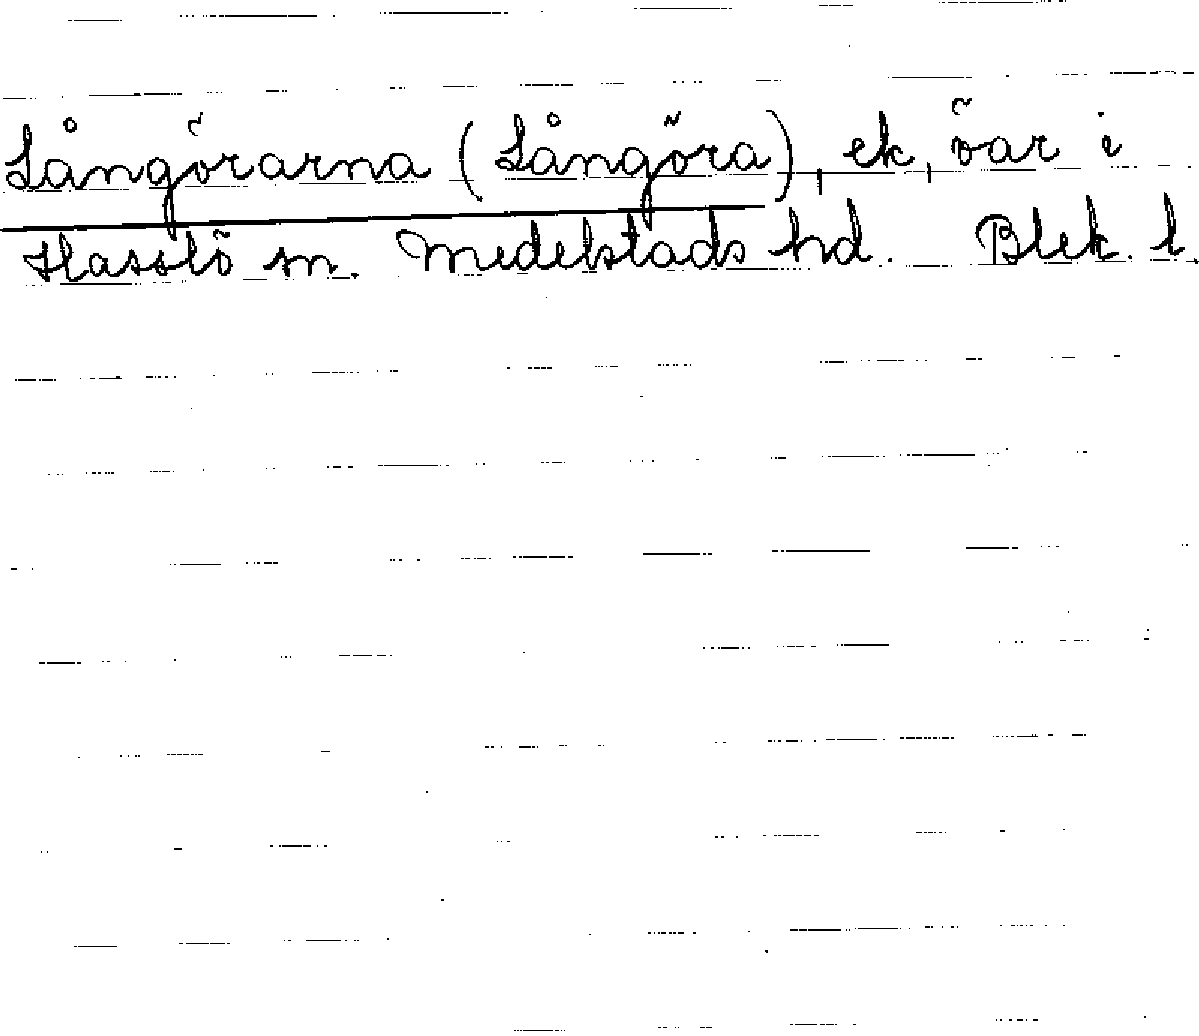 Långörarna (Långöra), ek, öar i
Hasslö sn. Medelstads hd. Blek. l.